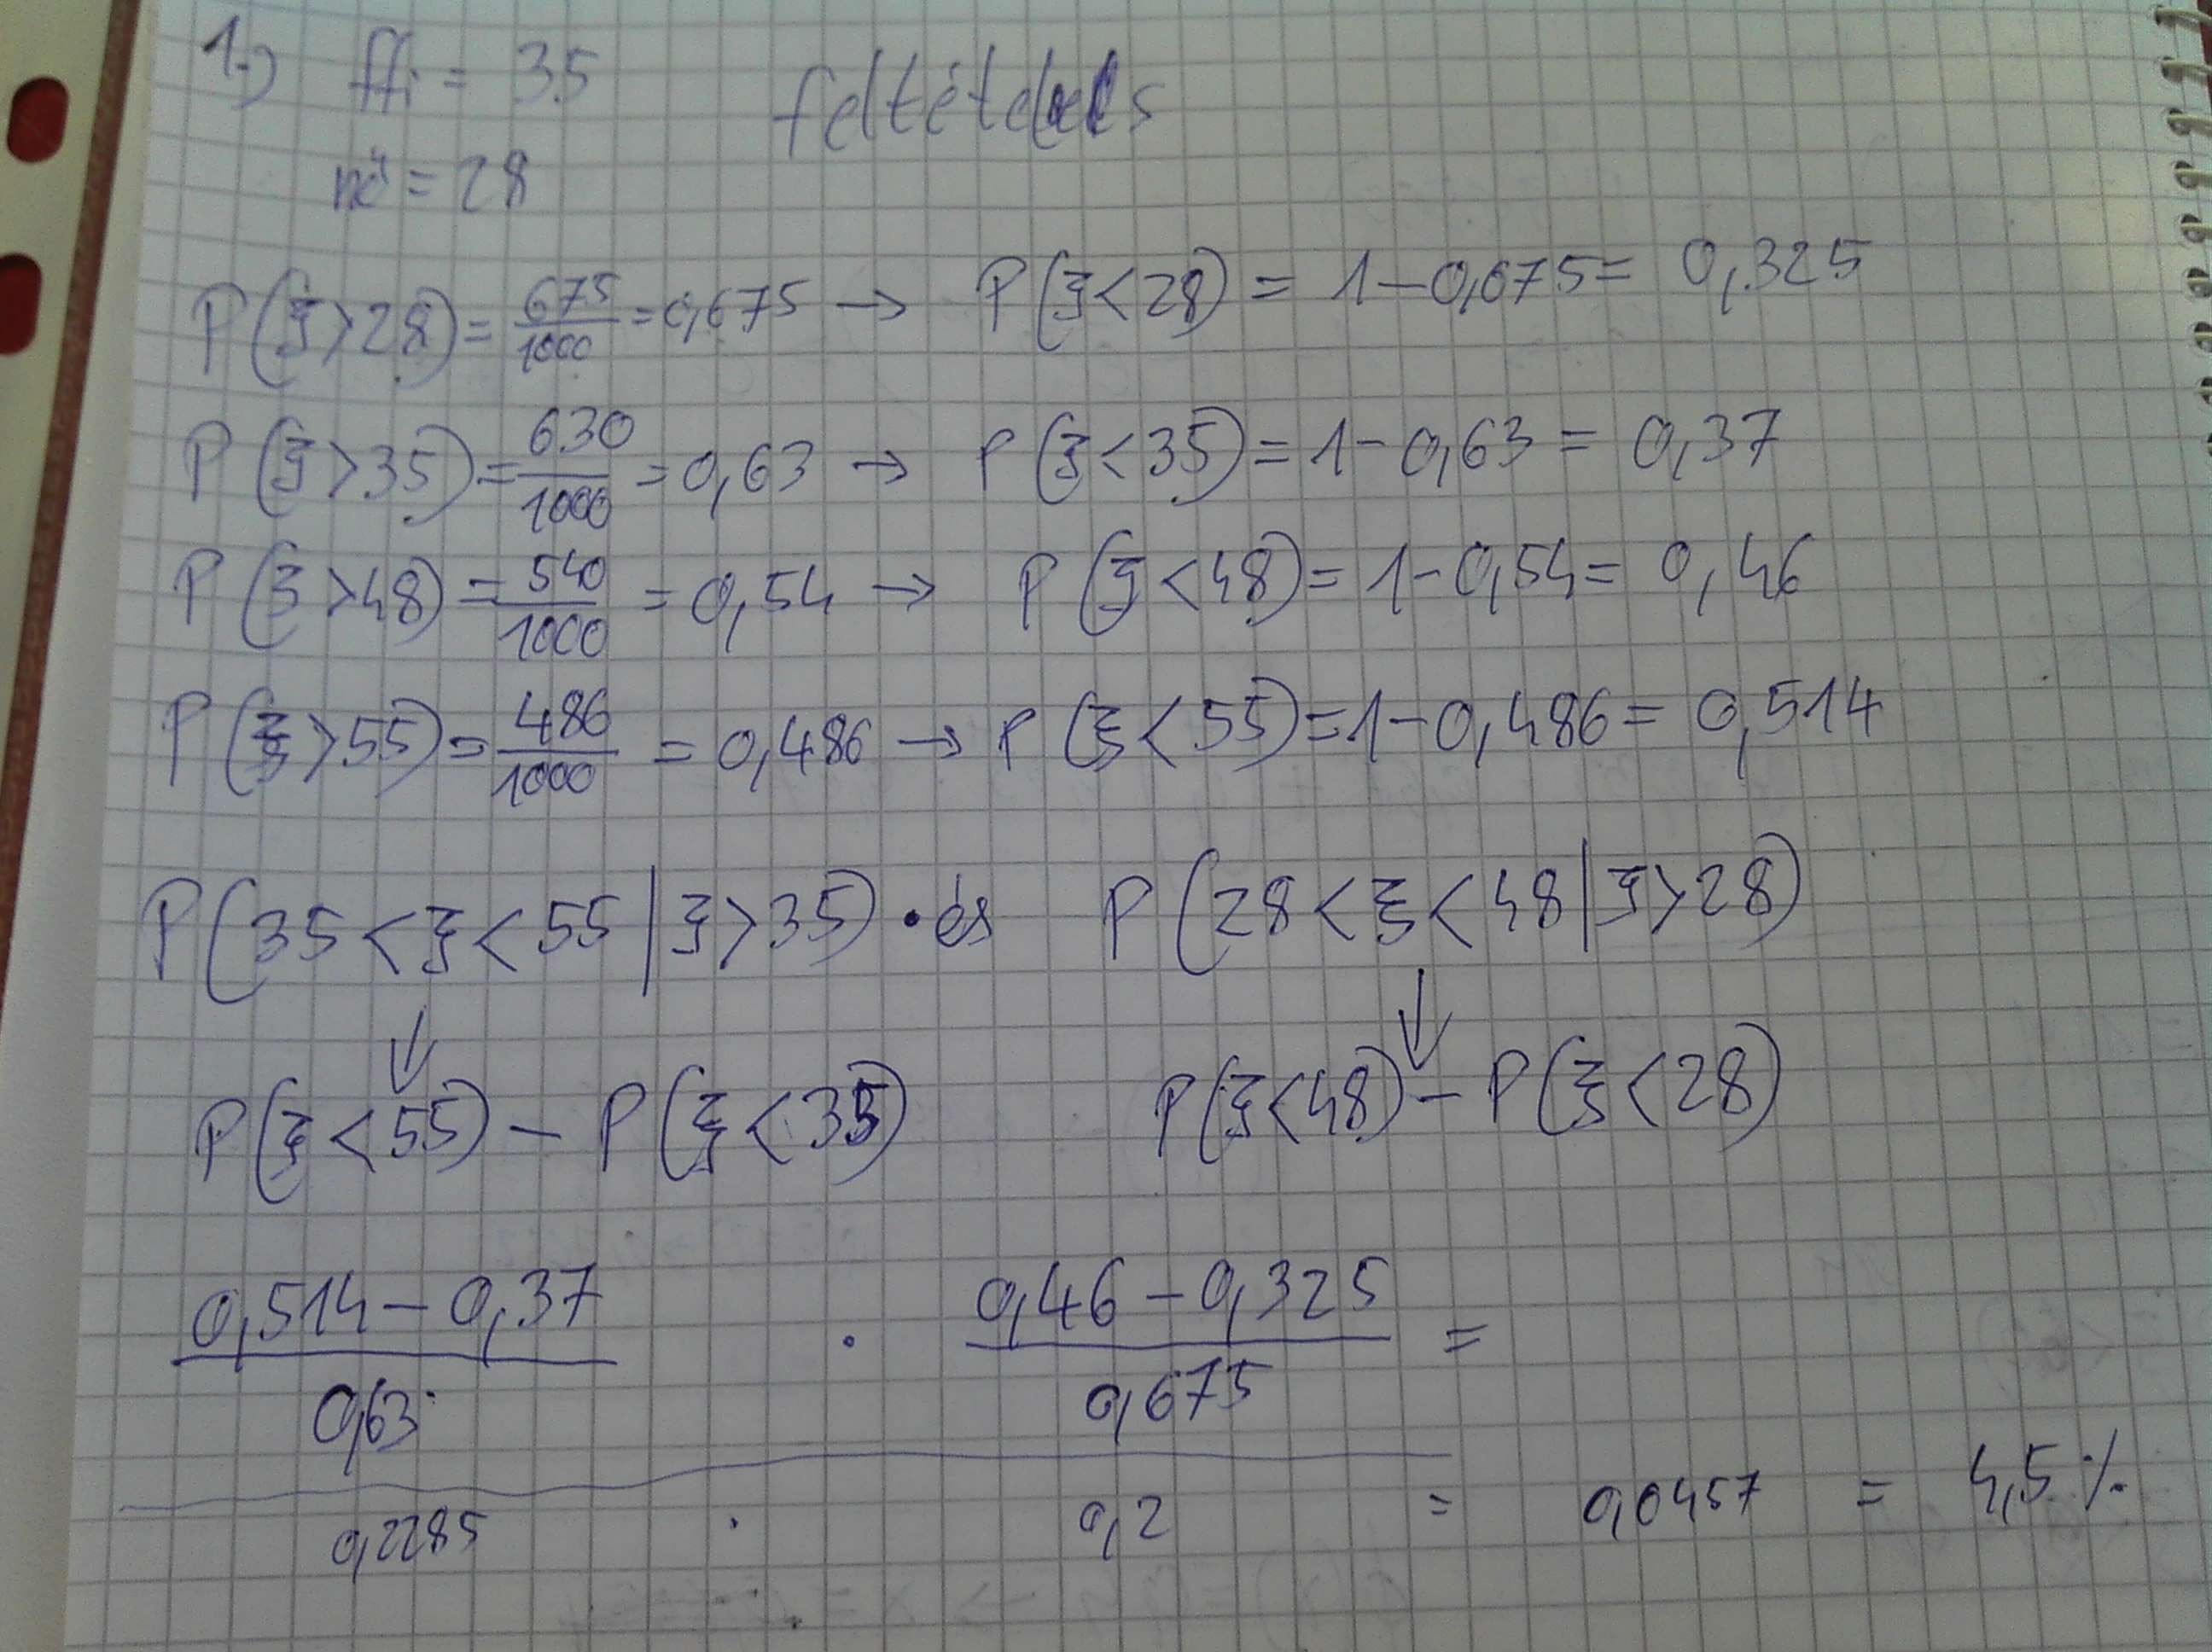 1.) ffi = 35 feltételes
nő = 28
P(ξ>28) = 675/1000 = 0,675 → P(ξ<28) = 1-0,675 = 0,325
P(ξ>35) = 630/1000 = 0,63 → P(ξ<35) = 1-0,63 = 0,37
P(ξ>48) = 540/1000 = 0,54 → P(ξ<48) = 1-0,54 = 0,46
P(ξ>55) = 486/1000 = 0,486 → P(ξ<55) = 1-0,486 = 0,514
P(35<ξ<55|ξ>35) · és P(28<ξ<48|ξ>28)
↓ ↓
P(ξ<55) - P(ξ<35) P(ξ<48) - P(ξ<28)
0,514-0,37 / 0,63 · 0,46-0,325 / 0,675 =
0,2285 · 0,2 = 0,0457 = 4,5%